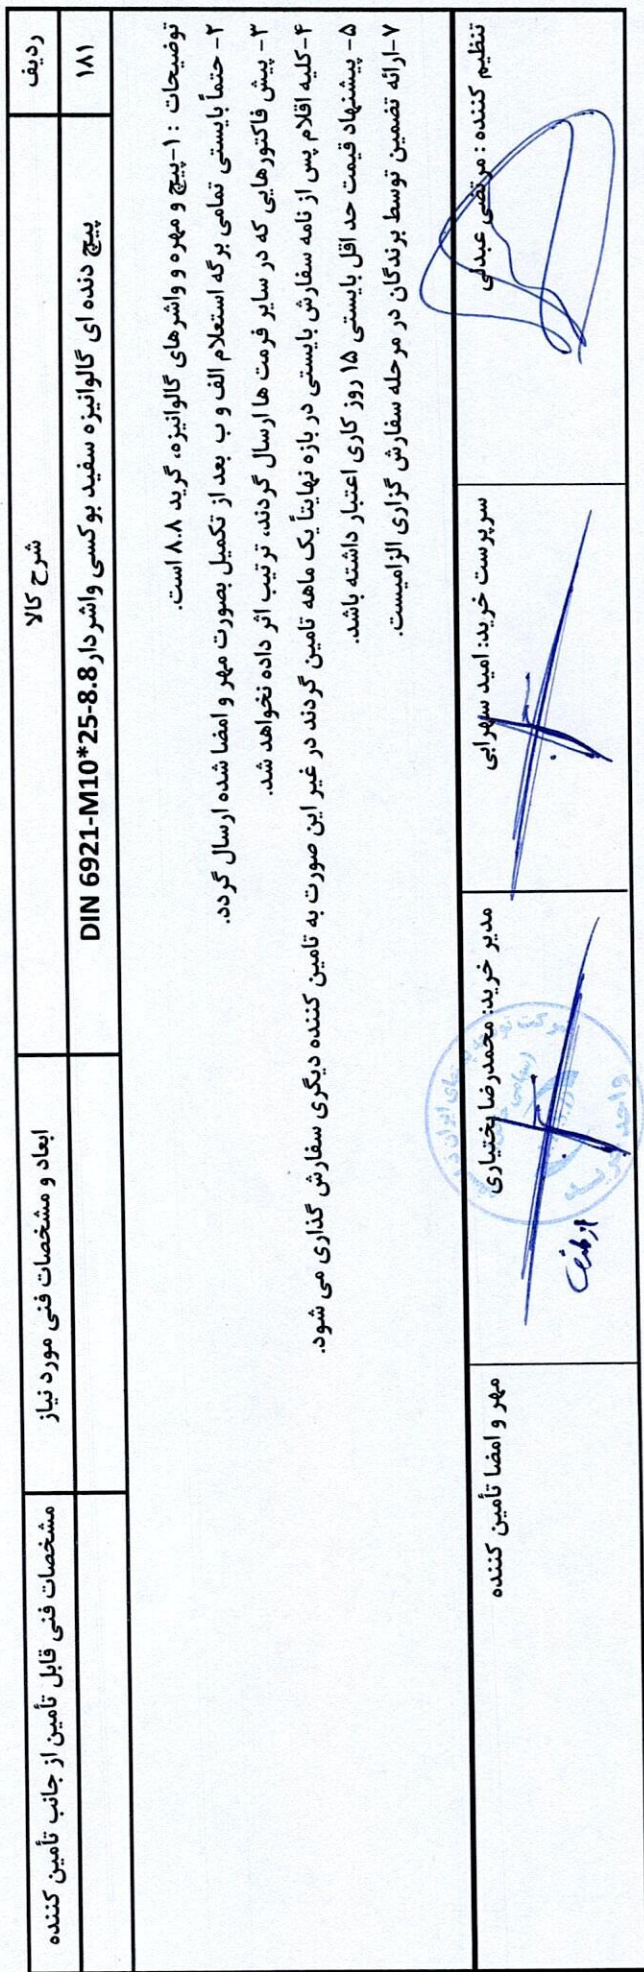 ردیف
شرح کالا
ابعاد و مشخصات فنی مورد نیاز
مشخصات فنی قابل تأمین از جانب تأمین کننده
۱۸۱
پیچ دنده ای گالوانیزه سفید بوکسی واشر دار DIN 6921-M10*25-8.8
توضیحات : ۱-پیچ و مهره و واشرهای گالوانیزه، گرید ۸.۸ است.
۲- حتماً بایستی تمامی برگه استعلام الف و ب بعد از تکمیل بصورت مهر و امضا شده ارسال گردد.
۳- پیش فاکتورهایی که در سایر فرمت ها ارسال گردند، ترتیب اثر داده نخواهد شد.
۴-کلیه اقلام پس از نامه سفارش بایستی در بازه نهایتاً یک ماهه تامین گردند در غیر این صورت به تامین کننده دیگری سفارش گذاری می شود.
۵- پیشنهاد قیمت حداقل بایستی ۱۵ روز کاری اعتبار داشته باشد.
۷-ارائه تضمین توسط برندگان در مرحله سفارش گزاری الزامیست.
تنظیم کننده : مرتضی عبدلی
سرپرست خرید: امید سهرابی
مدیر خرید: محمدرضا بختیاری
مهر و امضا تأمین کننده
از طرف